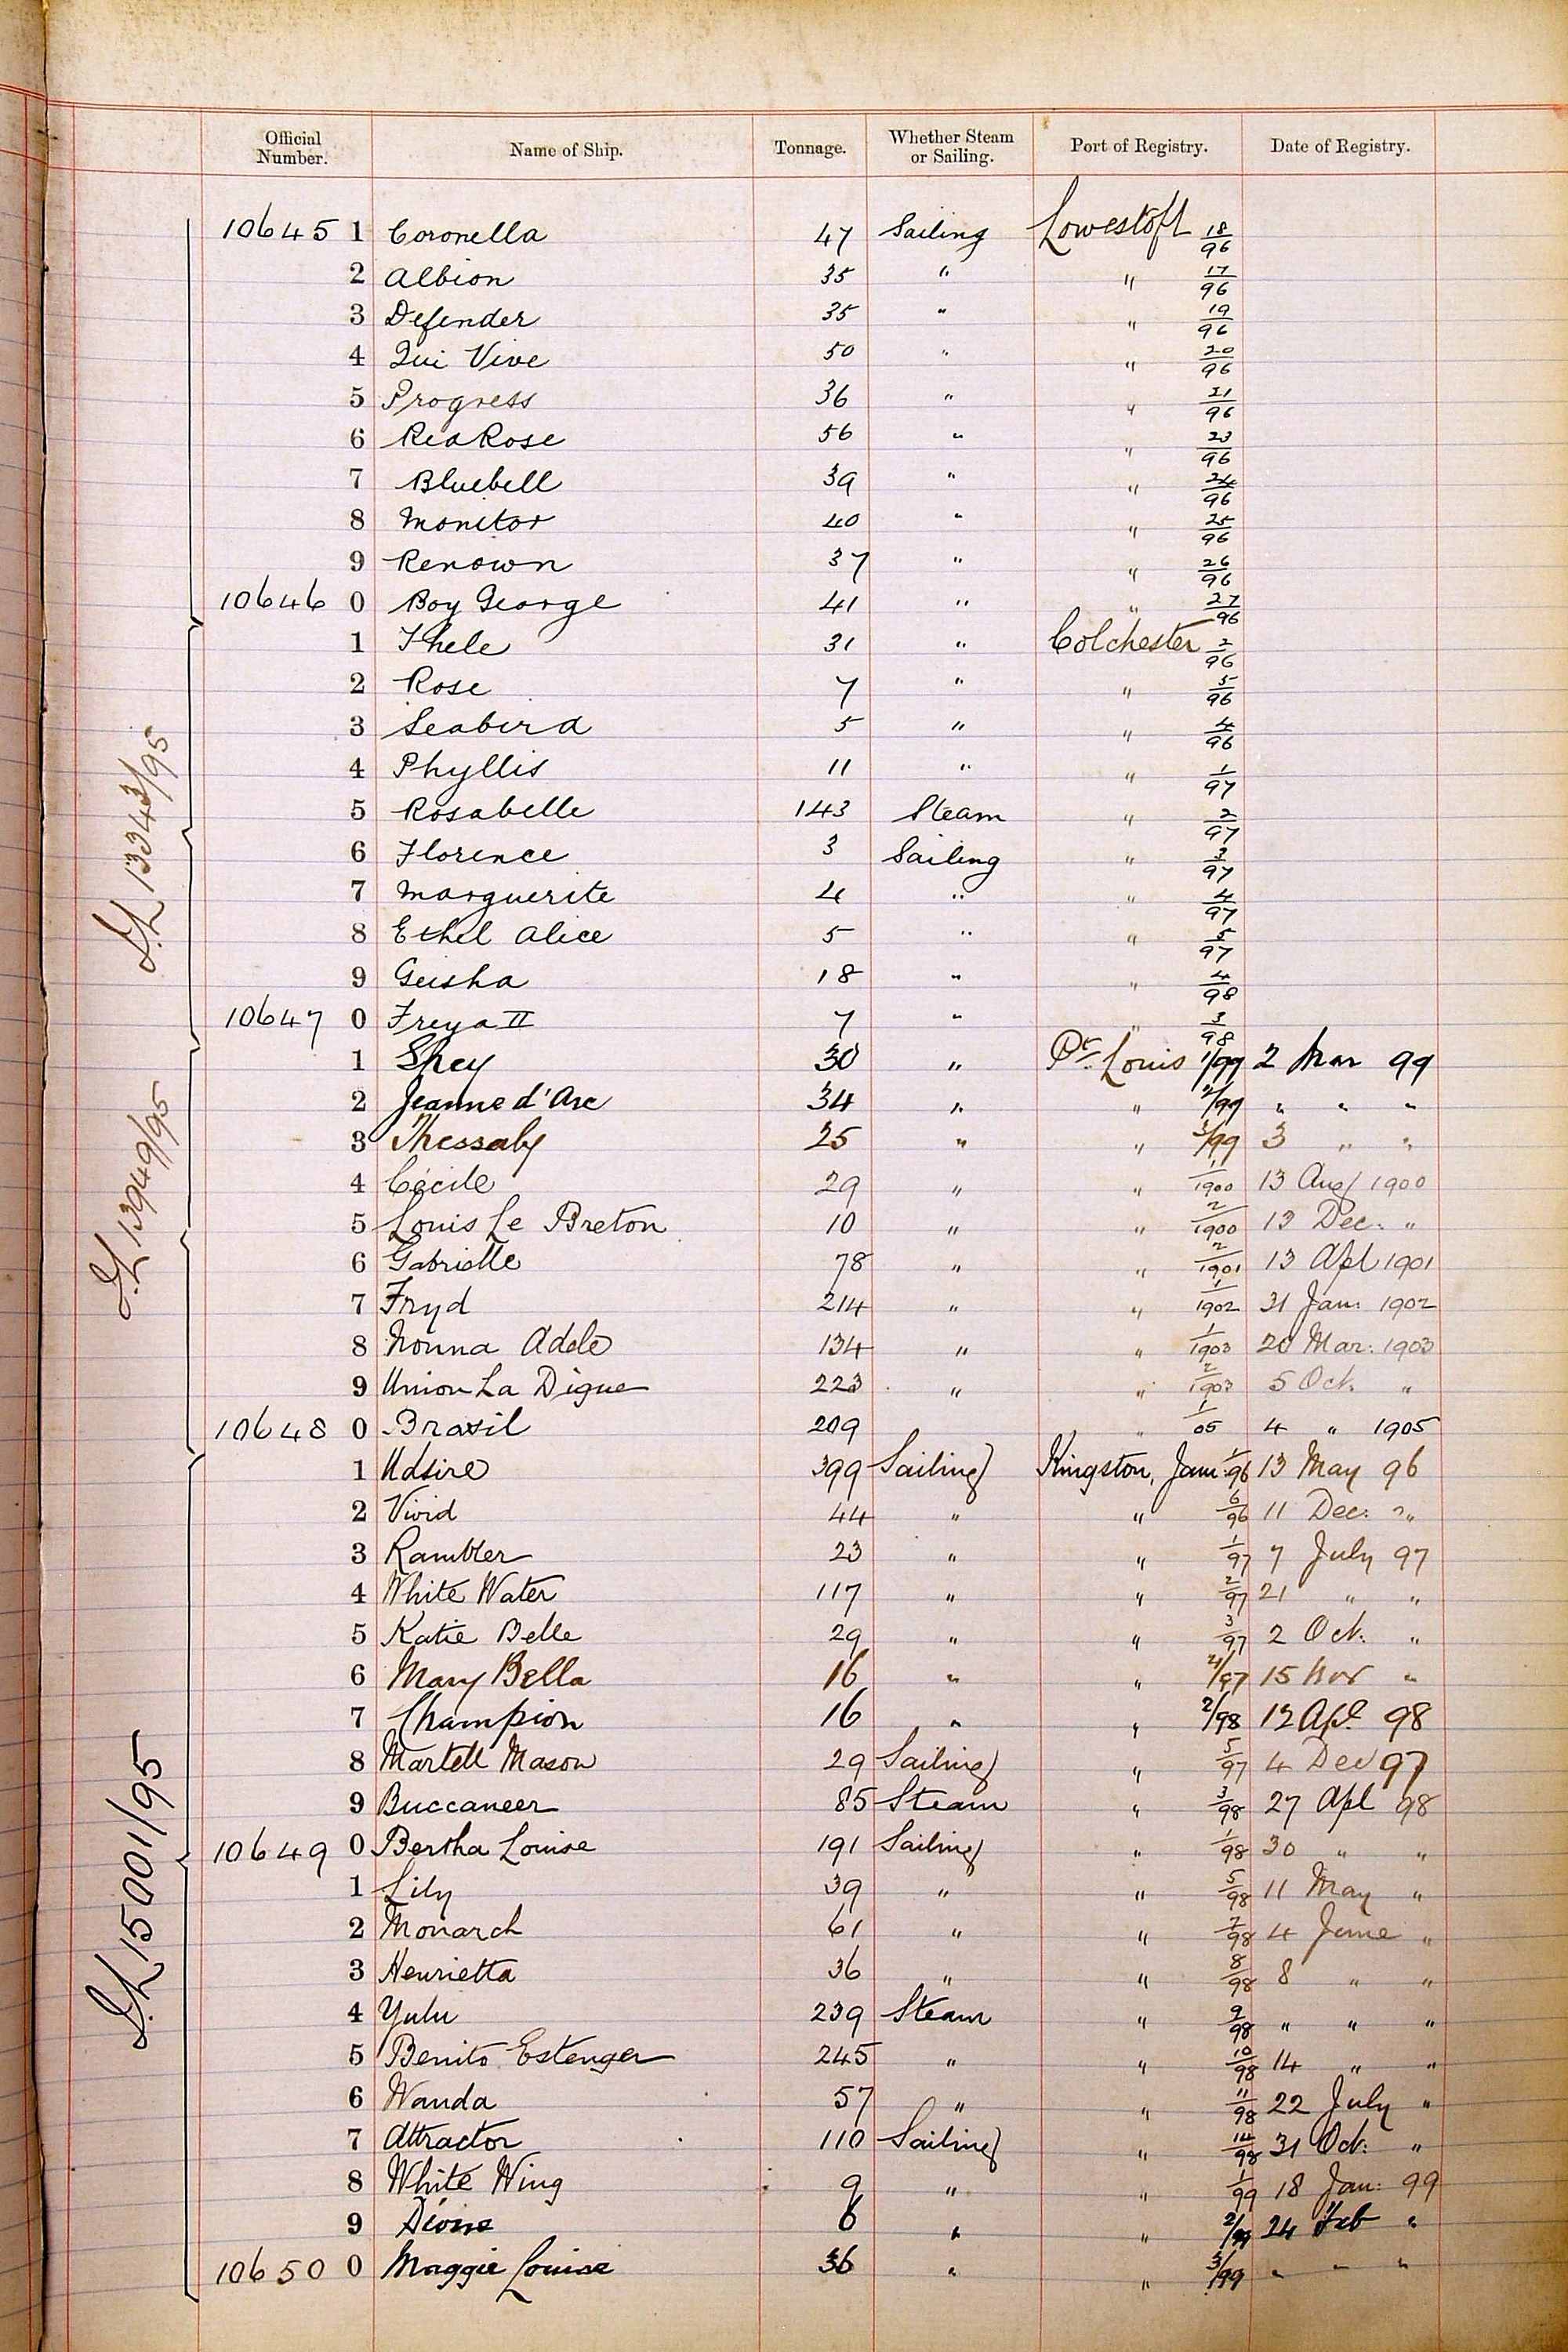 Official Number. Name of Ship. Tonnage. Whether Steam or Sailing. Port of Registry. Date of Registry.
10645 1 Coronella 47 Sailing Lowestoft 18/96
2 Albion 35 " " 17/96
3 Defender 35 " " 19/96
4 Qui Vive 50 " " 20/96
5 Progress 36 " " 21/96
6 Red Rose 56 " " 23/96
7 Bluebell 39 " " 24/96
8 Monitor 40 " " 25/96
9 Renown 37 " " 26/96
10646 0 Boy George 41 " " 27/96
1 Thele 31 " Colchester 2/96
2 Rose 7 " " 5/96
3 Seabird 5 " " 4/96
4 Phyllis 11 " " 1/97
5 Rosabelle 143 Steam " 2/97
6 Florence 3 Sailing " 3/97
7 Marguerite 4 " " 4/97
8 Ethel Alice 5 " " 5/97
9 Geisha 18 " " 4/98
10647 0 Freya II 7 " " 3/98
1 Shey 30 " Pt. Louis 1/99 2 Mar 99
2 Jeanne d'Arc 34 " " 2/99 " " "
3 Thessaly 25 " " 3/99 3 " "
4 Cécile 29 " " 1/1900 13 Aug 1900
5 Louis Le Breton 10 " " 2/1900 13 Dec. "
6 Gabrielle 78 " " 2/1901 13 Apl 1901
7 Fryd 214 " " 1/1902 31 Jan: 1902
8 Nonna Adele 134 " " 1/1903 20 Mar: 1903
9 Union La Digue 223 " " 2/1903 5 Oct. "
10648 0 Brasil 209 " 1/05 4 " 1905
1 Udsire 399 Sailing Kingston, Jam: 1/96 13 May 96
2 Vivid 44 " " 6/96 11 Dec: "
3 Rambler 23 " " 1/97 7 July 97
4 White Water 117 " " 2/97 21 " "
5 Katie Belle 29 " " 3/97 2 Oct: "
6 Mary Bella 16 " " 4/97 15 Nov "
7 Champion 16 " " 2/98 12 Apl 98
8 Martell Mason 29 Sailing " 5/97 4 Dec 97
9 Buccaneer 85 Steam " 3/98 27 Apl 98
10649 0 Bertha Louise 191 Sailing " 1/98 30 " "
1 Lily 39 " " 5/98 11 May "
2 Monarch 61 " " 7/98 4 June "
3 Henrietta 36 " " 8/98 8 " "
4 Yulu 239 Steam " 9/98 " " "
5 Benito Estenger 245 " " 10/98 14 " "
6 Wanda 57 " " 11/98 22 July "
7 Attractor 110 Sailing " 14/98 31 Oct: "
8 White Wing 9 " " 1/99 18 Jan: 99
9 6 " " 2/99 24 Feb "
10650 0 Maggie Louise 36 " " 3/99 " " "
13343/95
13949/95
15001/95